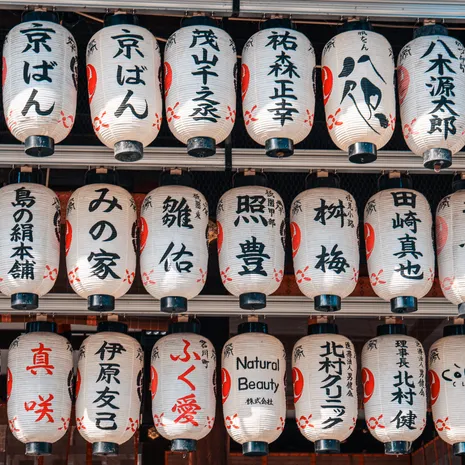 京ばん
京ばん
茂山千之丞
祐森正幸
八木源太郎
島の絹本舗
みの家
雛佑
祇園甲部
照豊
桝梅
田崎真也
真咲
伊原友己
宮川町
ふく愛
Natural
Beauty
株式会社
北村クリニック
理事長
北村健